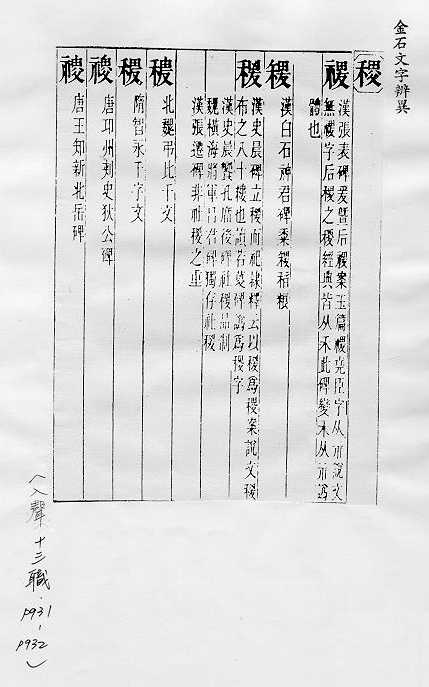 金石文字辨異
稷
稷 漢張表碑爰曁后稷案玉篇稷堯臣字从示說文
無稷字后稷之稷經典皆从禾此碑變木从示爲
體也
稷 漢白石神君碑黍稷稻粮
稷 漢史晨碑立稷而祀隷釋云以稷爲稷案說文稷
布之八十縷也
漢史晨饗孔廟後碑社稷品制
魏橫海將軍呂君碑獨存社稷
漢張遷碑非社稷之重
稷 北魏弔比干文
稷 隋智永千字文
稷 唐邛州刺史狄公碑
稷 唐王知新北岳碑
(入聲 十三職.
p931-
p932)